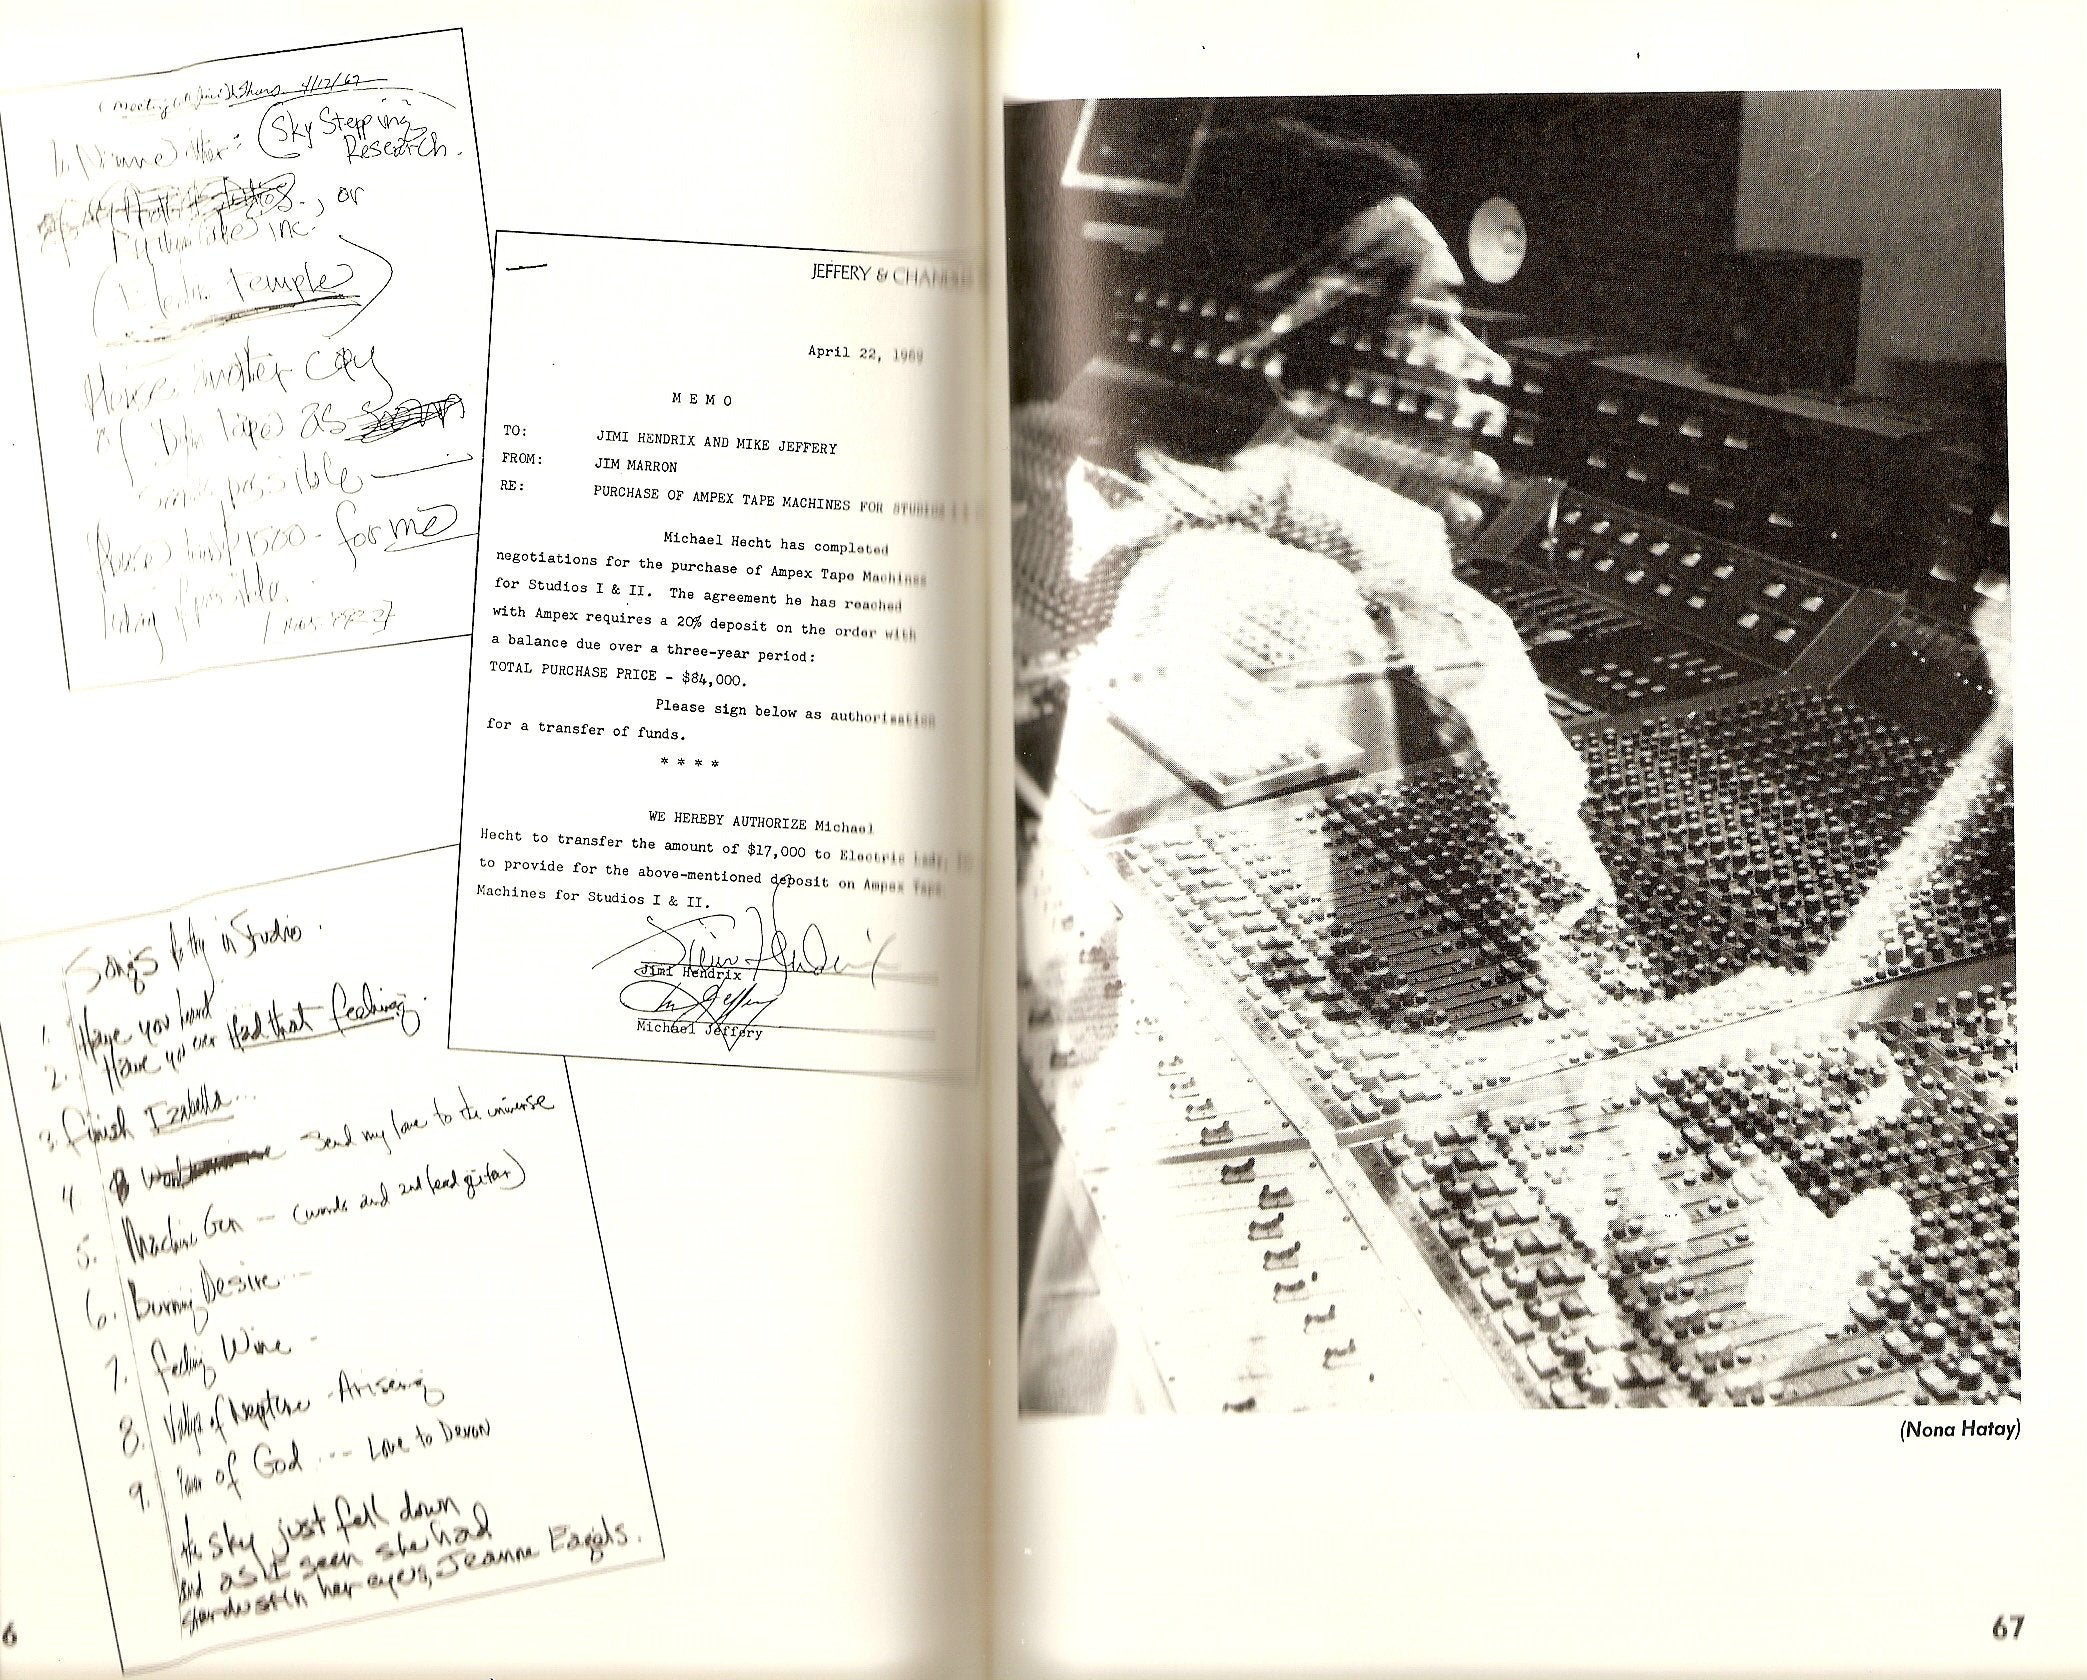 Thurs.
Sky Stepping
Research.
or
inc.
temple
another copy
tape as
possible —
$1500 - for me
JEFFERY & CHAN
April 22, 1969
MEMO
TO: JIMI HENDRIX AND MIKE JEFFERY
FROM: JIM MARRON
RE: PURCHASE OF AMPEX TAPE MACHINES FOR STUDIOS I &
Michael Hecht has completed
negotiations for the purchase of Ampex Tape Machines
for Studios I & II. The agreement he has reached
with Ampex requires a 20% deposit on the order with
a balance due over a three-year period:
TOTAL PURCHASE PRICE - $84,000.
Please sign below as authorization
for a transfer of funds.
* * * *
WE HEREBY AUTHORIZE Michael
Hecht to transfer the amount of $17,000 to Electric Lady,
to provide for the above-mentioned deposit on Ampex Tape
Machines for Studios I & II.
Jimi Hendrix
Jimi Hendrix
Michael Jeffery
Songs to try in Studio.
1. Have you heard
2. Have you ever Had that feeling.
3. finish Izabella...
4. Send my love to the universe
5. Machine Gun — (words and 2nd lead guitar)
6. Burning Desire...
7. Feeling Wine -
8. Valleys of Neptune - Arising
9. of God... Love to Devon
the sky just fell down
and as I seen she had
stardust in her eyes, Jeanne Eagels.
6
(Nona Hatay)
67